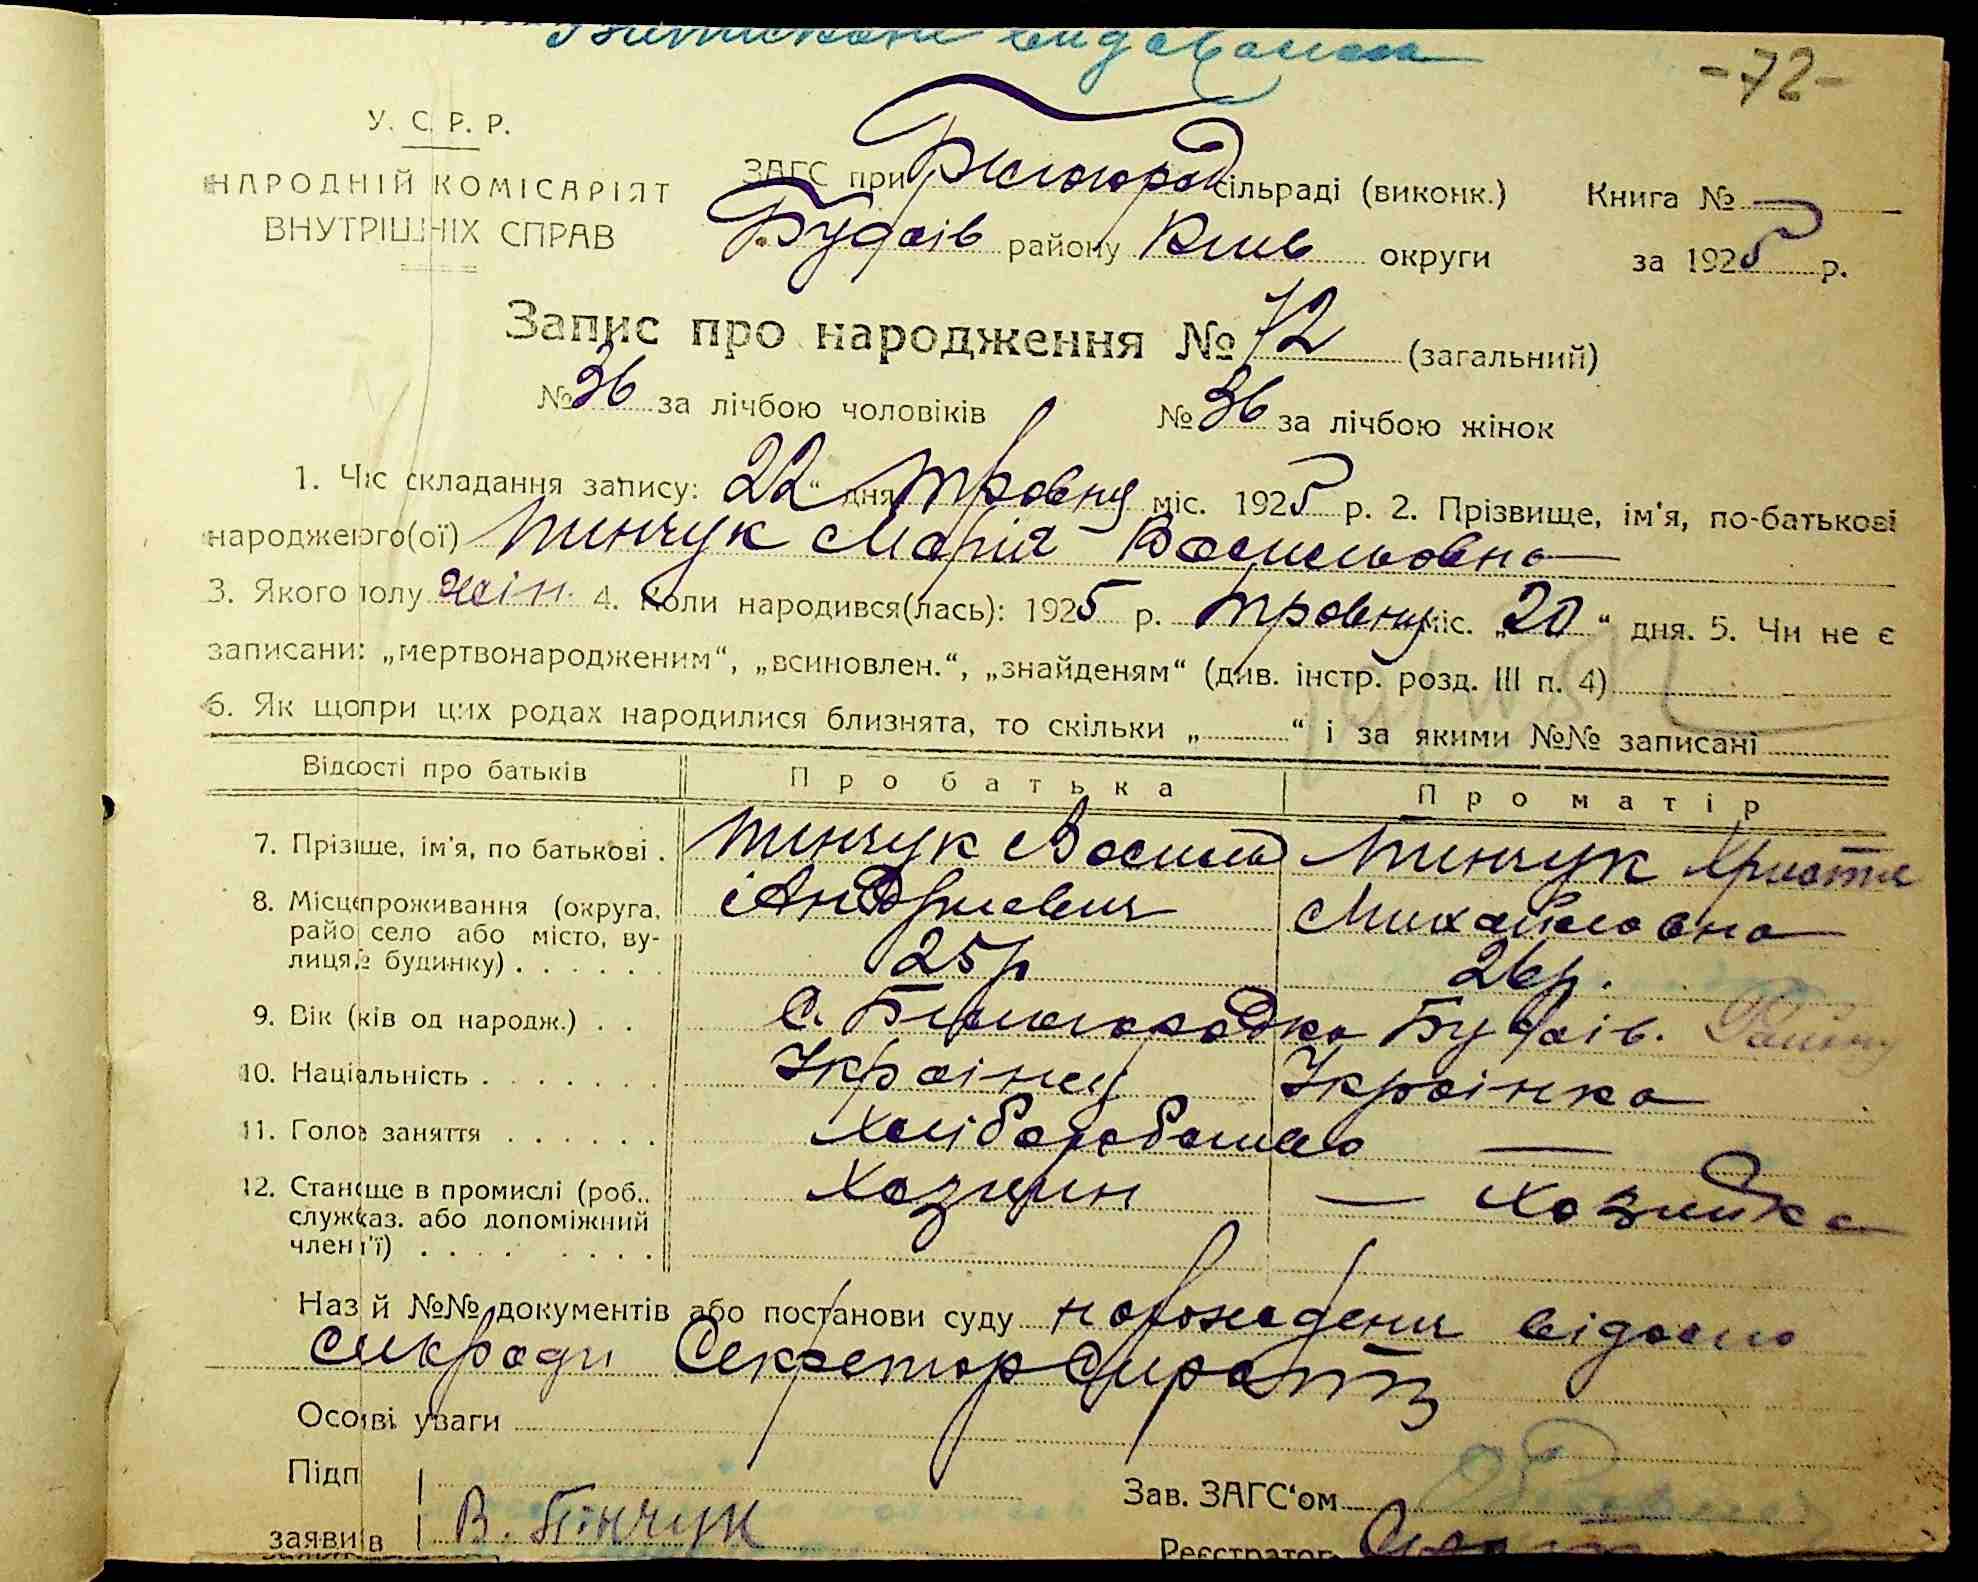 -72-
У. С. Р. Р.
НАРОДНІЙ КОМІСАРІЯТ
ВНУТРІШНІХ СПРАВ
ЗАГС при Білогород сільраді (виконк.) Книга №
Будаїв району Київ округи за 1925 р.
Запис про народження № 72 (загальний)
№ 36 за лічбою чоловіків № 36 за лічбою жінок
1. Час складання запису: 22 “ дня травня міс. 1925 р. 2. Прізвище, ім'я, по-батькові
народженого(ої) Пинчук Марія Васильовна
3. Якого полу жін. 4. Коли народився(лась): 1925 р. травня міс. „20“ дня. 5. Чи не є
записани: „мертвонародженим“, „всиновлен.“, „знайденям“ (див. інстр. розд. III п. 4)
6. Як щопри цих родах народилися близнята, то скільки „ “ і за якими №№ записані
Відсості про батьків Про батька Про матір
7. Прізвище, ім'я, по батькові . Пинчук Василь Пинчук Христя
Андриевич Михайловна
8. Місцепроживання (округа, райо село або місто, ву-
лиця,№ будинку) . . . . . . 25р 26р.
9. Вік (ків од народж.) . . С. Білогородка Будаїв. Району
10. Національність . . . . . . . Українец Українка
11. Голов заняття . . . . . . Хліборобство —
12. Становище в промислі (роб., Хозяин — Хозяйка
служ. каз. або допоміжний
член ї'ї) . . . . . . . .
Наз й №№ документів або постанови суду народження відомо
сікради Секретар
Особві уваги
Підп
заявив В. Пінчук
Зав. ЗАГС'ом
Реєстратор